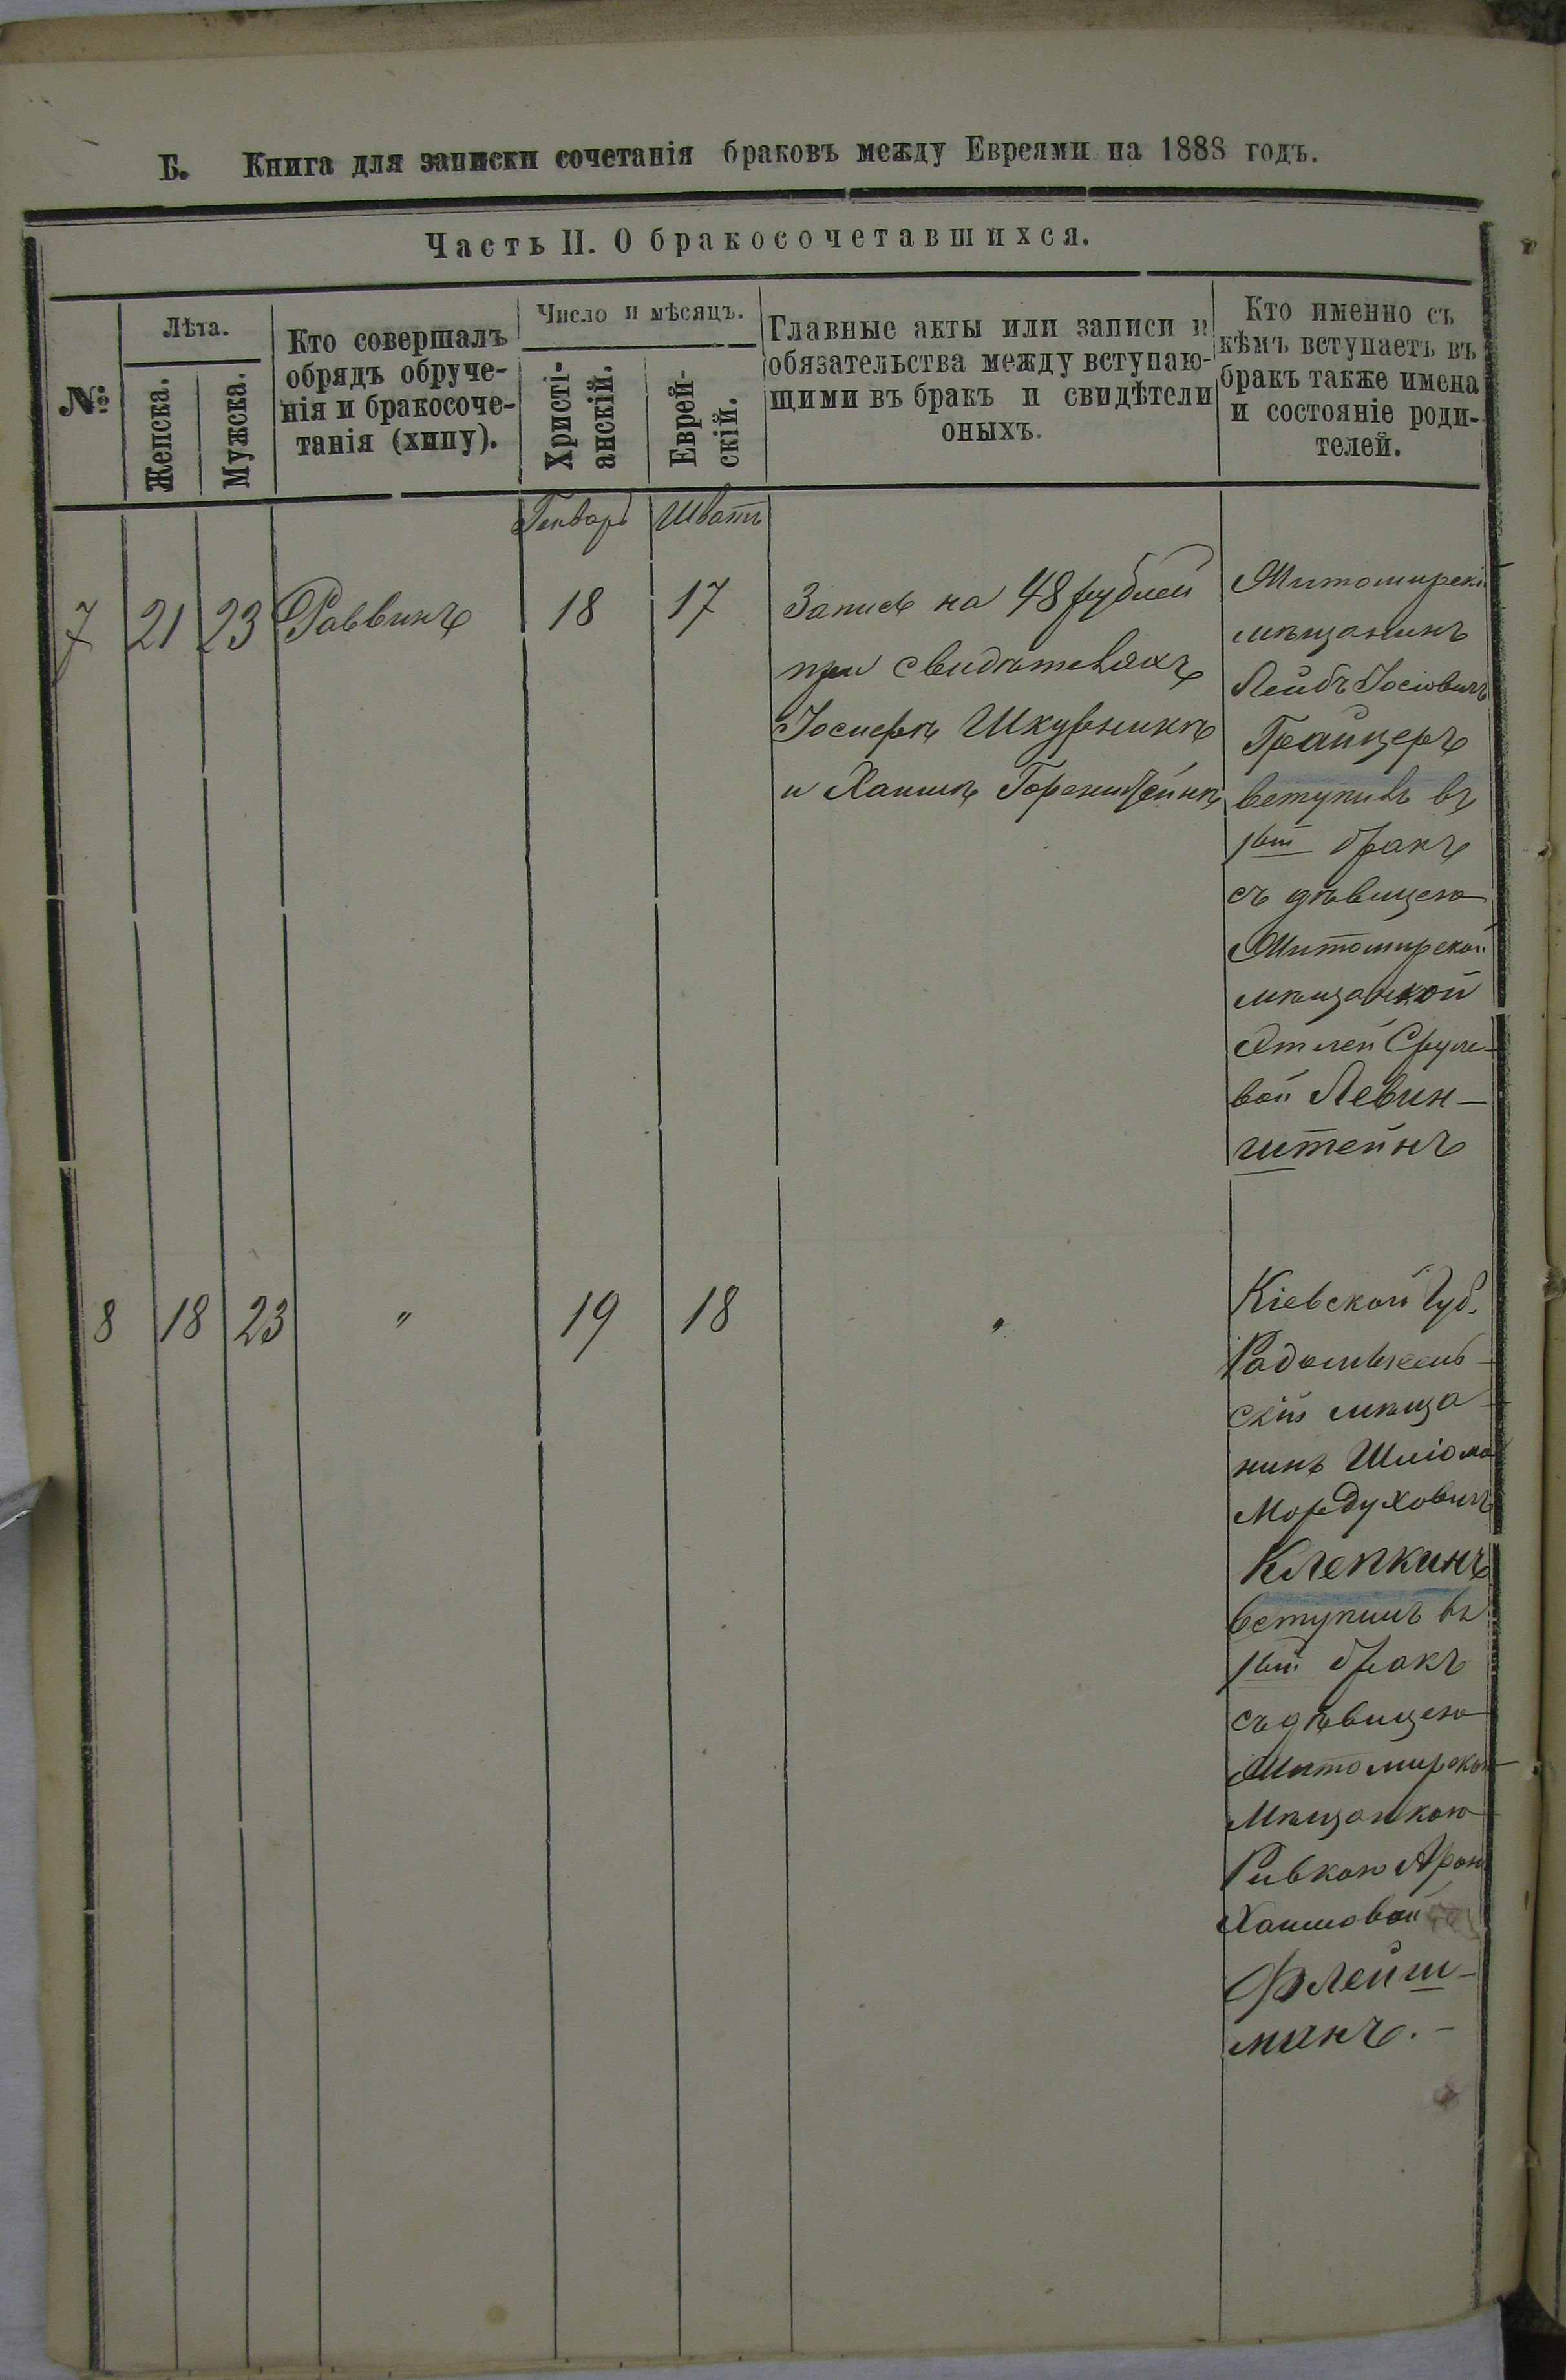 Б. Книга для записки сочетанія браковъ между Евреями на 1888 годъ.
Часть II. О бракосочетавшихся.
№
Лѣта.
Женска.
Мужска.
Кто совершалъ
обрядъ обруче-
нія и бракосоче-
танія (хипу).
Число и мѣсяцъ.
Христі-
анскій.
Еврей-
скій.
Главные акты или записи и
обязательства между вступаю-
щими въ бракъ и свидѣтели
оныхъ.
Кто именно съ
кѣмъ вступаетъ въ
бракъ также имена
и состояніе роди-
телей.
Генварь
Шватъ
7
21
23
Раввинъ
18
17
Запись на 48 рублей
при свидѣтеляхъ
Іосифѣ Шкурникѣ
и Хаимѣ Горенштейнѣ
Житомирскій
мѣщанинъ
Лейбъ Іосіовичъ
Грайцеръ
вступилъ въ
1ый бракъ
съ дѣвицею
Житомирской
мѣщанкой
Этлей Сруле-
вой Левин-
штейнъ
8
18
23
"
19
18
"
Кіевской Губ.
Радомысль-
скій мѣща-
нинъ Шліома
Мордуховичъ
Клепкинъ
вступилъ въ
1ый бракъ
съ дѣвицею
Житомирской
Мѣщанкою
Ривкою Арон
Хаимовой
Флейш-
манъ.-